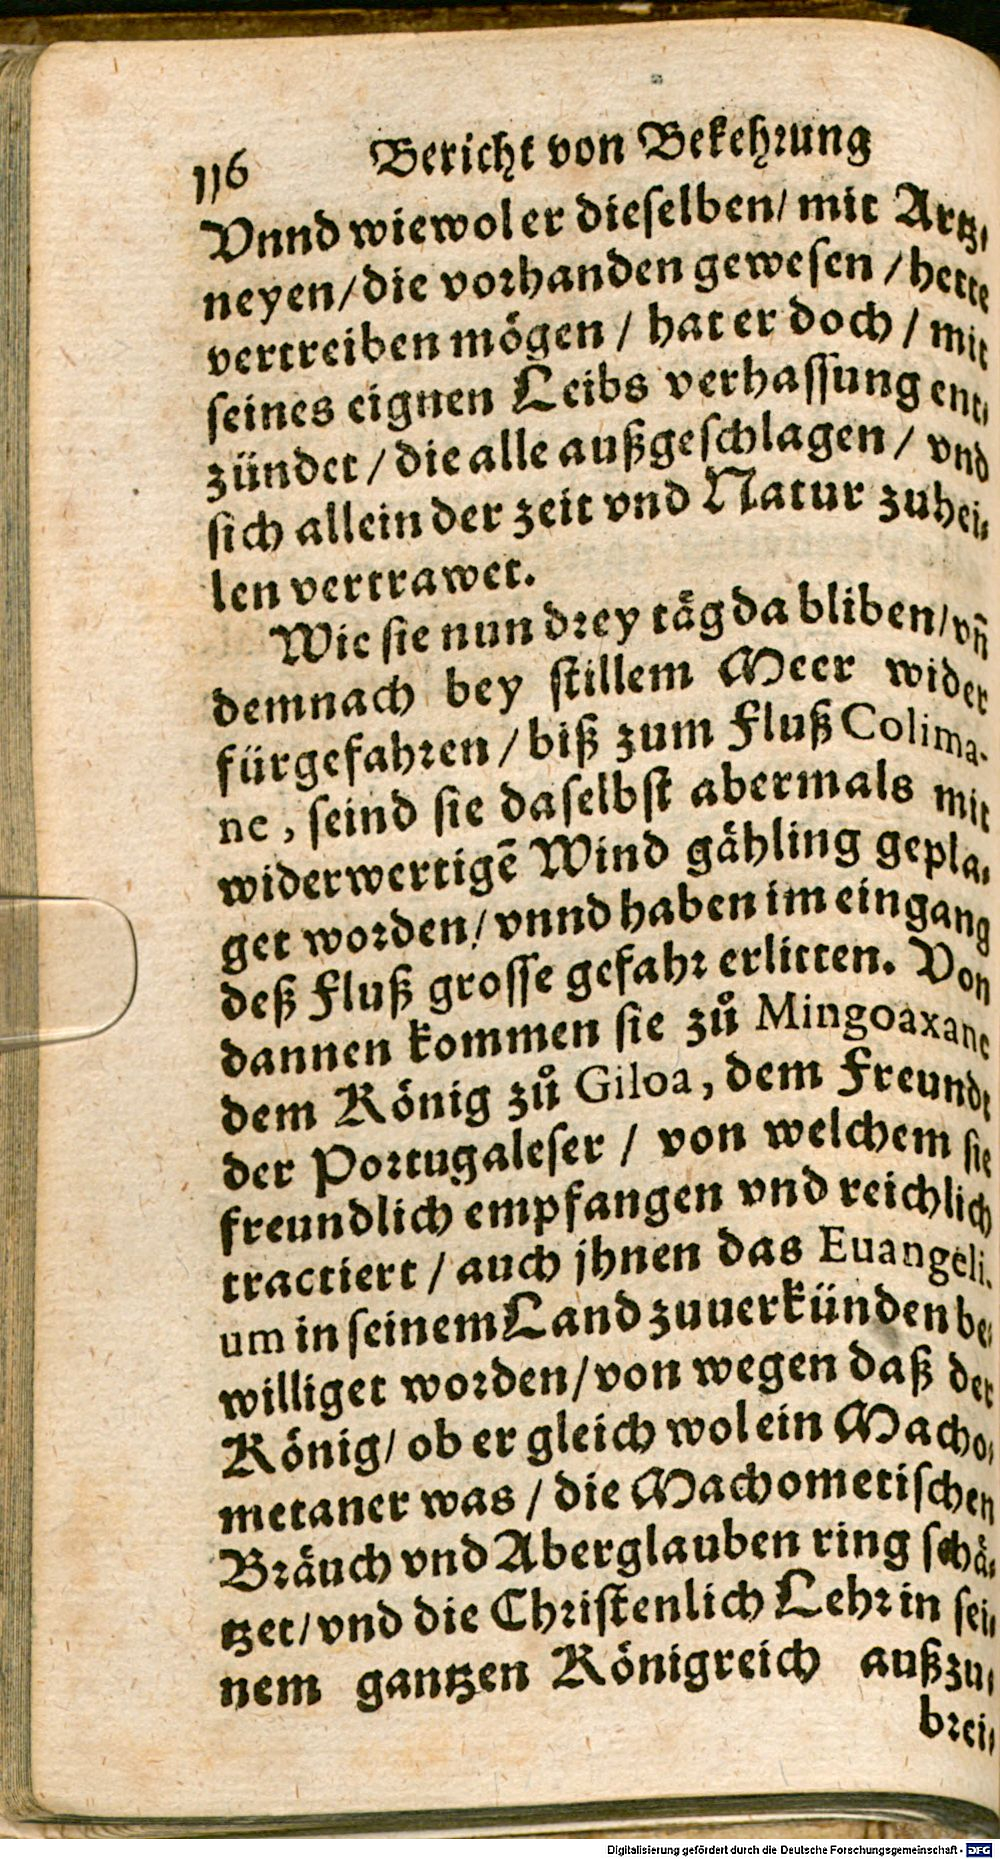 116 Bericht von Bekehrung
Vnnd wiewol er dieselben/ mit Artz-
neyen/die vorhanden gewesen /hette
vertreiben mögen / hat er doch / mit
seines eignen Leibs verhassung ent-
zündet / die alle außgeschlagen / vnd
sich allein der zeit vnd Natur zuhei-
len vertrawet.
Wie sie nun drey täg da bliben/vñ
demnach bey stillem Meer wider
fürgefahren / biß zum Fluß Colima-
ne , seind sie daselbst abermals mit
widerwertigẽ Wind gähling gepla-
get worden/ vnnd haben im eingang
deß Fluß grosse gefahr erlitten. Von
dannen kommen sie zů Mingoaxane
dem König zů Giloa, dem Freundt
der Portugaleser / von welchem sie
freundlich empfangen vnd reichlich
tractiert / auch jhnen das Euangeli-
um in seinem Land zuuerkünden be-
williget worden/von wegen daß der
König/ ob er gleich wol ein Macho-
metaner was / die Machometischen
Bräuch vnd Aberglauben ring schä-
tzet/ vnd die Christenlich Lehr in sei-
nem gantzen Königreich außzu-
brei-
Digitalisierung gefördert durch die Deutsche Forschungsgemeinschaft - DFG